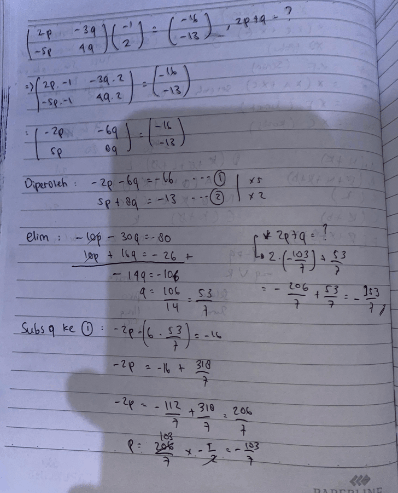 (2p -3q
-5p 4q) (-1
2) = (-16
-13) , 2p+q = ?
=> (2p.-1 -3q.2
-5p.-1 4q.2) = (-16
-13)
= (-2p -6q
5p 8q) = (-16
-13)
Diperoleh : -2p - 6q = -16 .... ① | x5
5p + 8q = -13 .... ② | x2
elim : -10p - 30q = -80
10p + 16q = -26 +
-14q = -106
q = 106/14 = 53/7
* 2p+q = ?
↳ 2.(-103/7) + 53/7
= -206/7 + 53/7 = -153/7
Subs q ke ① : -2p - (6 . 53/7) = -16
-2p = -16 + 318/7
-2p = -112/7 + 318/7 = 206/7
p = 206/7 x -1/2 = -103/7
103
PAPERLINE